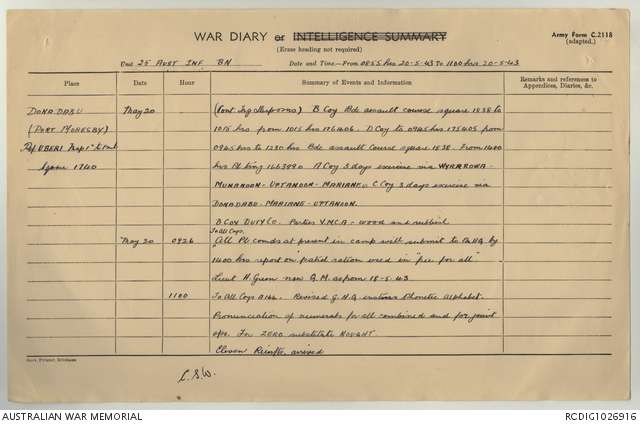 WAR DIARY or INTELLIGENCE SUMMARY
(Erase heading not required)
Army Form C.2118
(adapted.)
Unit 25 AUST INF. BN Date and Time—From 0855 hrs 20-5-43 To 1100 hrs 20-5-43
Place Date Hour Summary of Events and Information Remarks and references to Appendices, Diaries, &c.
DONADABU May 20 B Coy Bde assault course square 1838 to
(PORT MORESBY) 1015 hrs from 1015 hrs 176406. D Coy to 0945 hrs 175405 from
Ref. UBERI Map 1" to 1 mt 0945 hrs to 1230 hrs Bde assault Course square 1838. From 1400
1740 hrs Pl. 163390 A Coy 3 days exercise via WYRROWA-
MUNANDON-UPTANDON-MARIANE. C Coy 3 days exercise via
DONADABU-MARIANE-UPTANDON.
B COY DUTY CO. Parties Y.M.C.A - wood and rubbish
To All Coys.
May 20 0926 All Pl comds at present in camp will submit to BnHQ by
1400 hrs report on ration used in "free for all"
Lieut H. Green now Q.M. as from 18-5-43
1100 To All Coys. Revised G.H.Q. Phonetic Alphabet.
Pronunciation of numerals for all combined and for joint
ops. For ZERO substitute NOUGHT
Eleven Reinfts. arrived
L.S.W.
AUSTRALIAN WAR MEMORIAL
RCDIG1026916